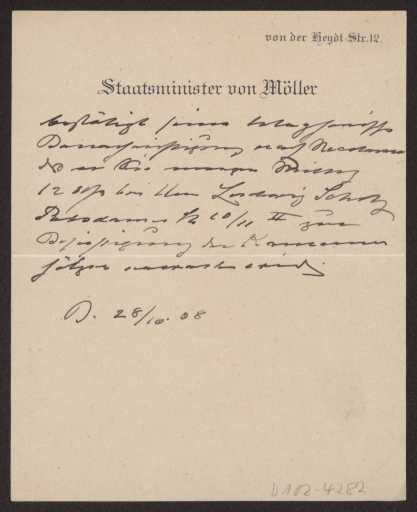 von der Heydt-Str. 12.
Staatsminister von Möller
bestätigt seine telegraphische
Benachrichtigung
daß er Sie morgen Mittag
12 Uhr bei Herrn Ludwig Schulz
Potsdamer Str 10/11 II zur
Besichtigung der
erwarten wird.
B. 28/10. 08
D 102-4282